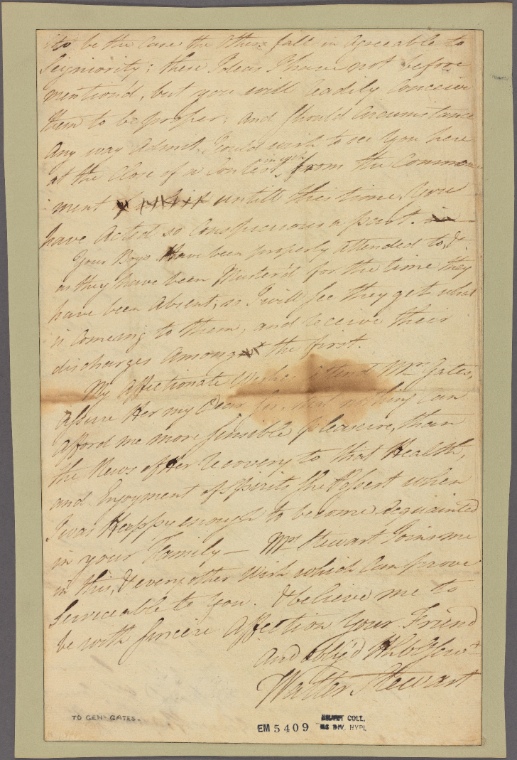 to be the Case, the others fall in agreeable to
Seyniority; these Ideas I have not before
mentiond, but you will readily Conceive
them to be proper; and should Circumstances
any way Admit, I could wish to see you here
at the Close of a Contest, in which from the Commence
ment untill this time, You
have Acted so Conspicuous a part.
Your Boys have been properly attended to, &
as they have been Muster'd for the time they
have been Absent, so I will see they get what
is Comeing to them, and receive their
discharges Among the first.
My Affectionate Wishes Mrs. Gates,
Assure Her my Dear General nothing Can
afford me more sensible pleasure, than
the News of Her recovery to that Health,
and Enjoyment of Spirits She Possest when
I was Happy enough to become Acquainted
in your Family — Mrs. Stewart Joins me
in this, & every other Wish which Can prove
Serviceable to You. & believe me to
be with Sincere Affection Your Friend
And Oblig'd Hble Serv.t
Walter Stewart
TO GENL GATES.
EM 5409
EMMET COLL.
MS. DIV. NYPL